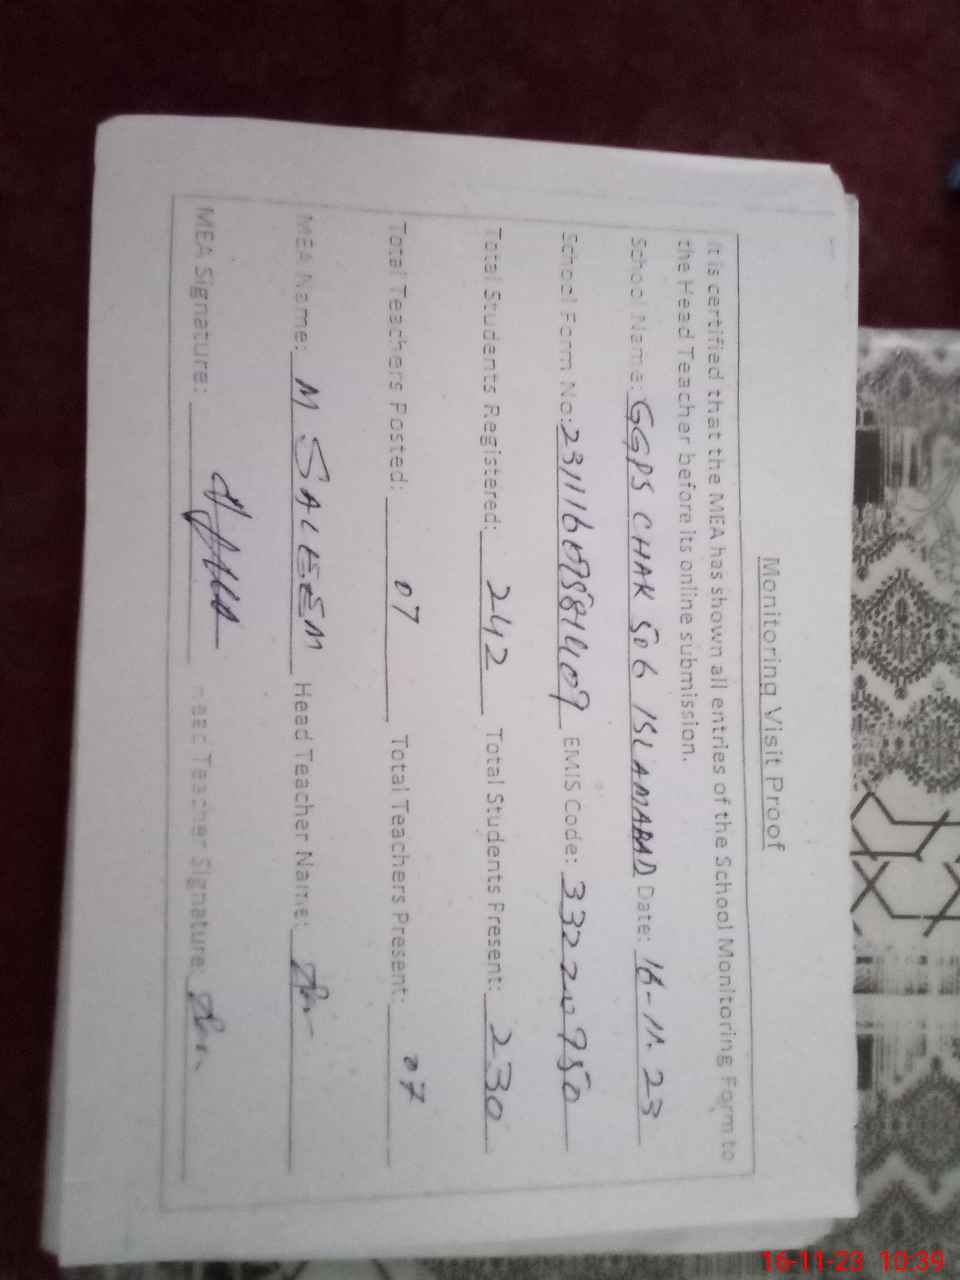 Monitoring Visit Proof
It is certified that the MEA has shown all entries of the School Monitoring Form to
the Head Teacher before its online submission.
School Name: GGPS CHAK 506 ISLAMABAD Date: 16-11.23
School Form No: EMIS Code: 33220750
Total Students Registered: 242 Total Students Present: 230
Total Teachers Posted: 07 Total Teachers Present: 07
MEA Name: M SALEEM Head Teacher Name:
MEA Signature: Head Teacher Signature:
16-11-23 10:39